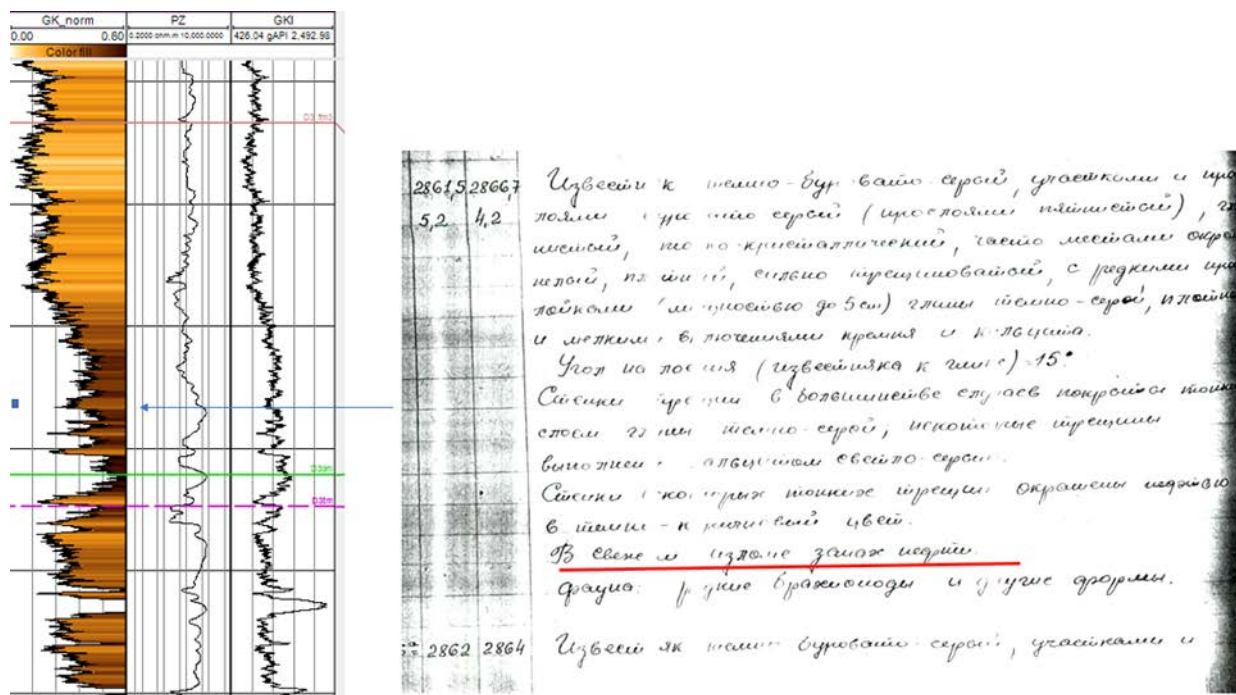 GK_norm PZ GKI
0.00 0.60 0.2000 ohm.m 10,000.0000 426.04 gAPI 2,492.98
Color fill
D3_fm3
D3dm
D3tm
2861,5 2866,7
5,2 4,2
Извести к темно-бур вато-серый, участками и про
слоями серый (прослоями пятнистый), гл
нистый, то но-кристаллический, часто местами окре
нелый, пл тн й, сильно трещиноватый, с редкими про
слойками (м щностью до 5 см) глины темно-серой, плотно
и мелкими в лючениями кремня и к льцита.
Угол на лое ия (известняка к глине) 15°
Стенки тре щин в большинстве случаев покрыты тонким
слоем гл ны темно-серой, некоторые трещины
выполнен альцитом светло-серым.
Стенки которых тонких трещин окрашены нефтью
в темно-к ричневый цвет.
В свеже м изломе запах нефти.
Фауна: р дкие брахиоподы и д угие формы.
2862 2864 Извест як темно буровато-серый, участками и